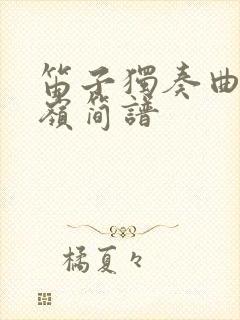 笛子獨奏曲
嶺簡譜
橘夏々